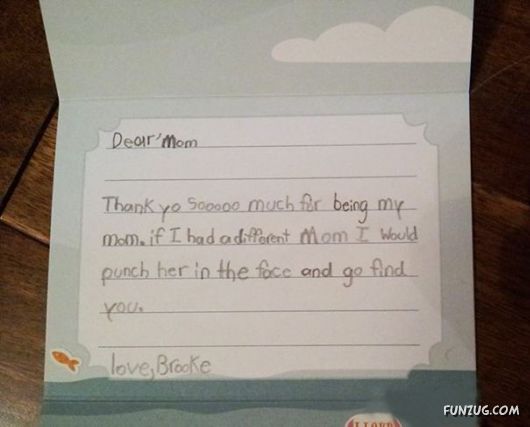 Dear Mom
Thank yo Sooooo much for being my
mom. if I had a different Mom I would
punch her in the face and go find
you.
love, Brooke
FUNZUG.COM